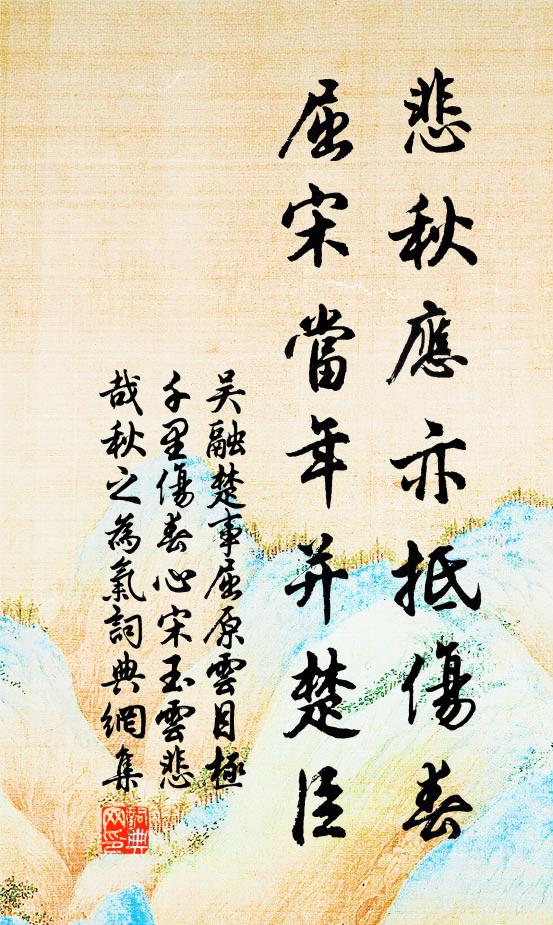 悲秋應亦抵傷春
屈宋當年并楚臣
吴融楚事屈原雲目極
千里傷春心宋玉雲悲
哉秋之為氣詞典網集
詞典
网印